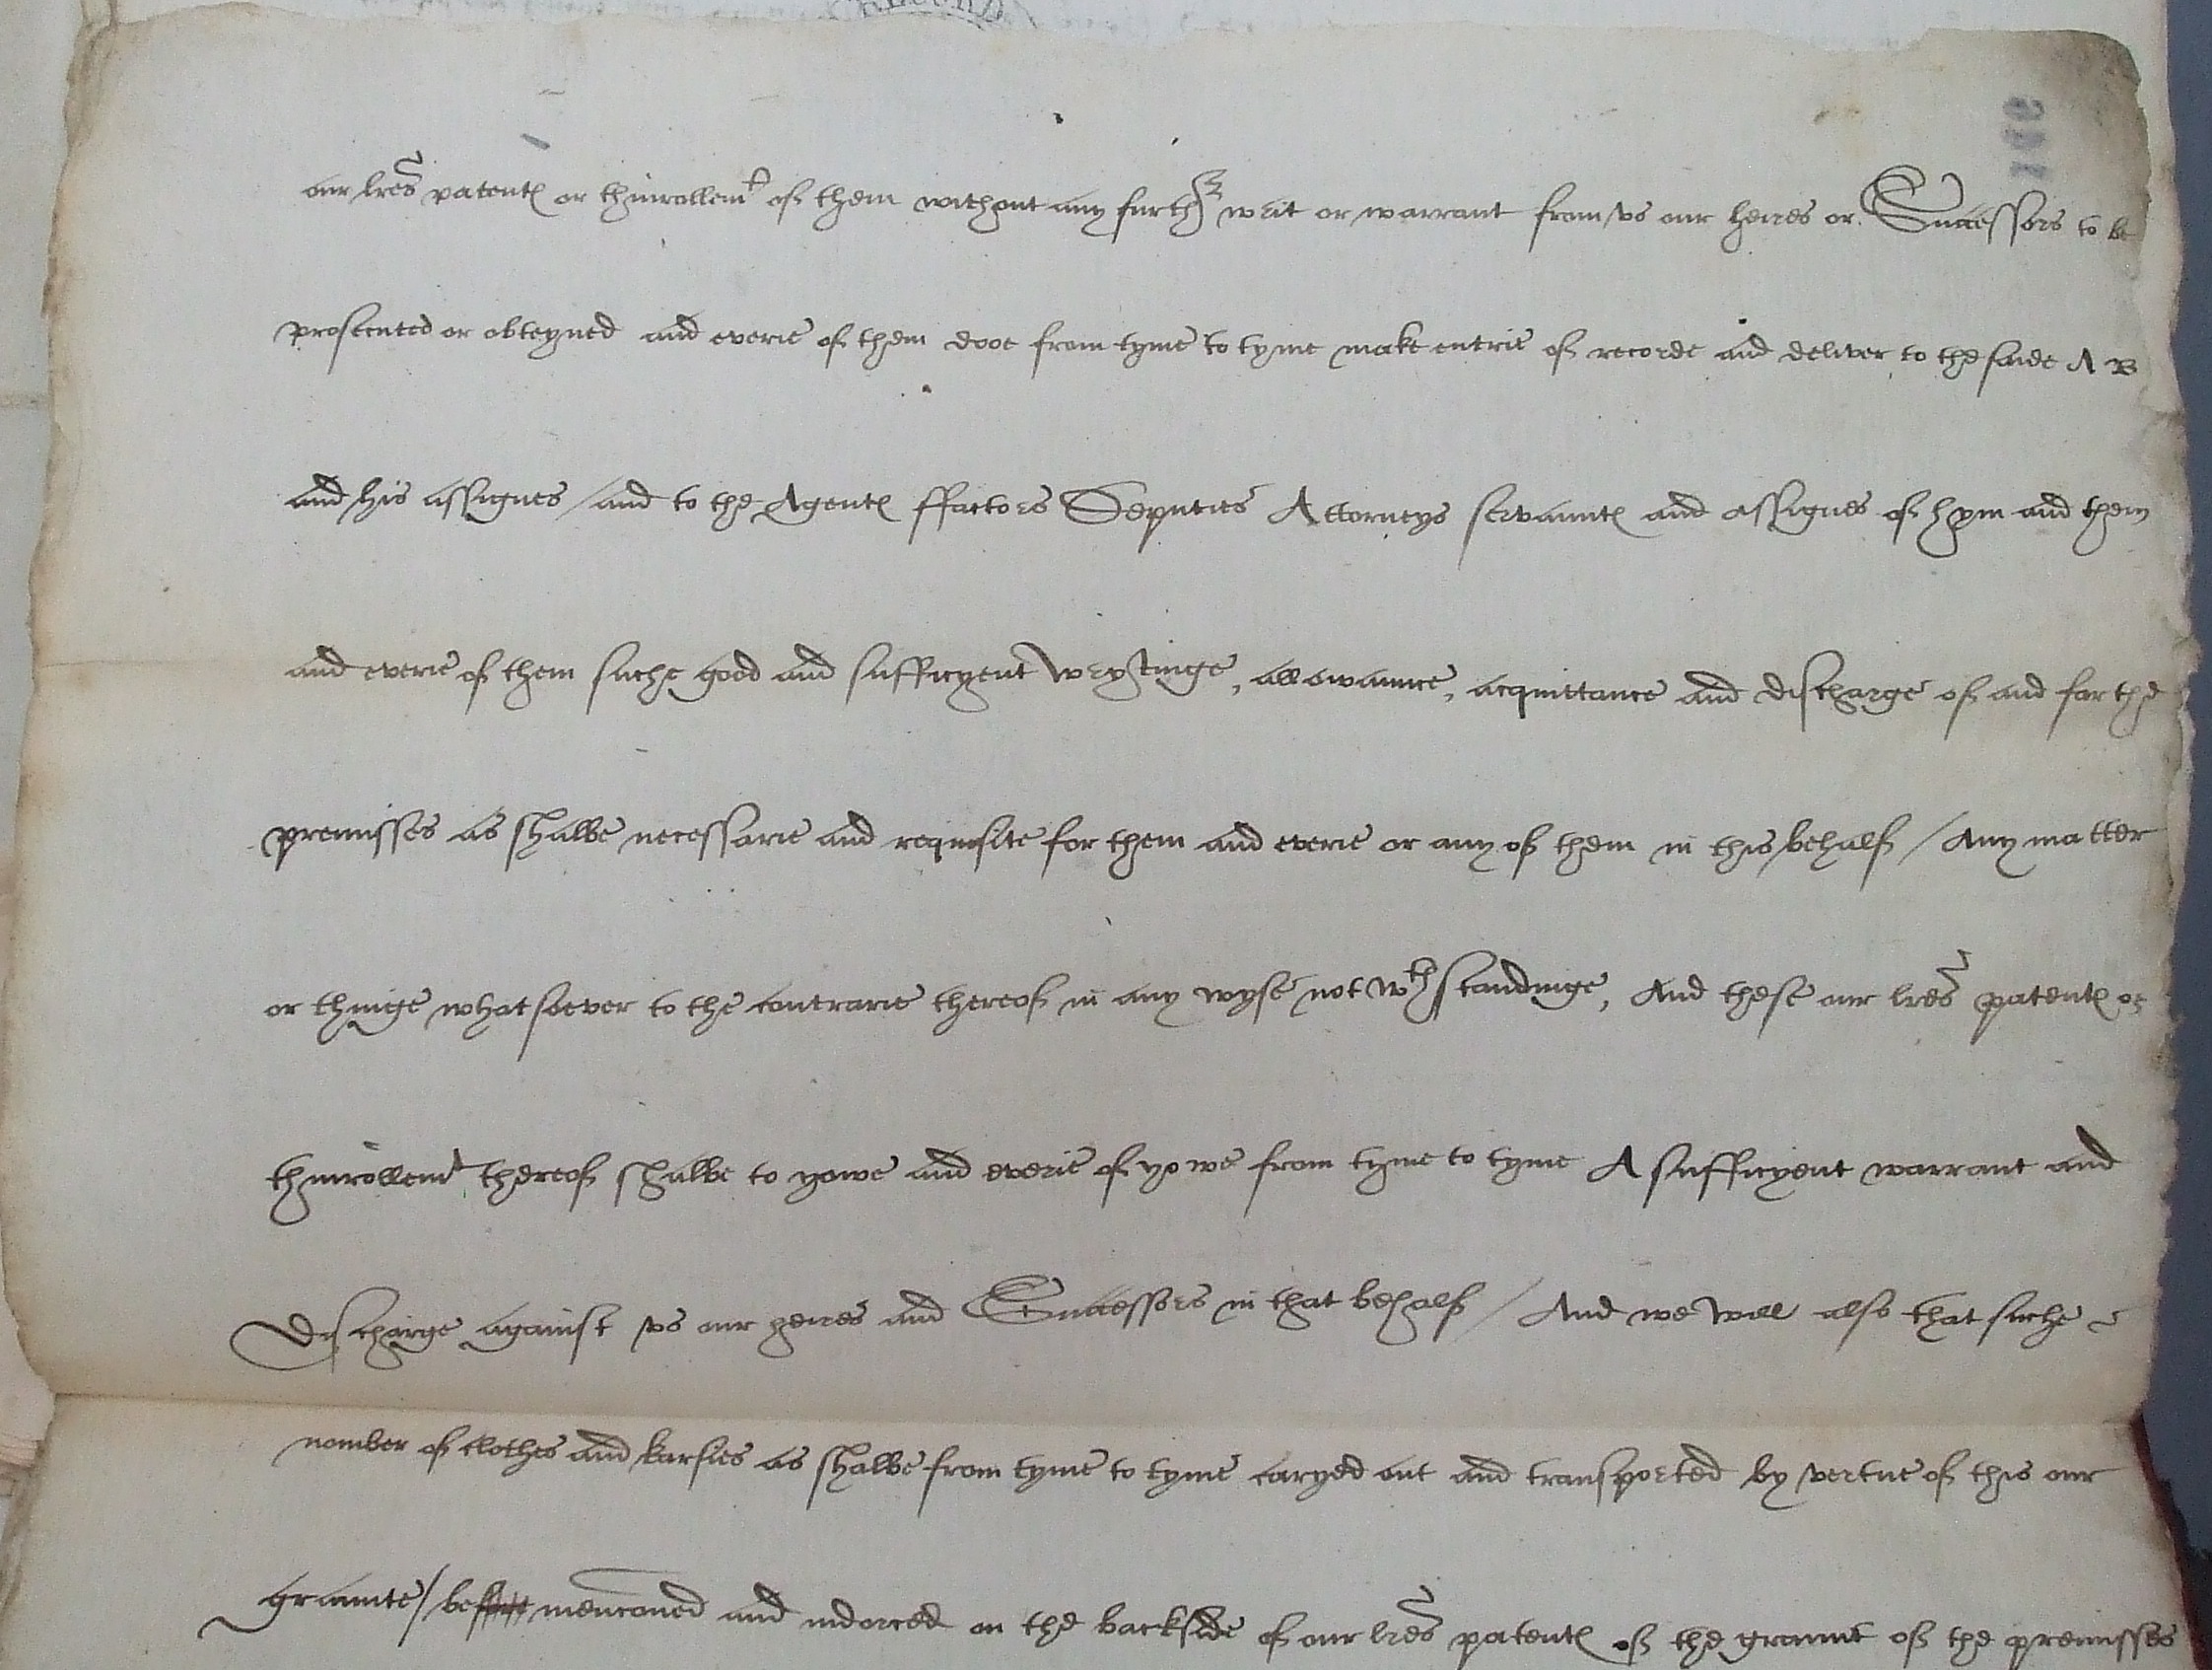 our lres patent or thinrollemt of them without any further writ or warrant from vs our heires or Successors to be
prosecuted or obteyned and everie of them dooe from tyme to tyme make entrie of recorde and deliver to the saide A B
and his assignes / and to the Agent ffactors Deputies Attorneys servaunt and assignes of hym and them
and everie of them suche good and sufficyent wrytinge, allowaunce, acquittance and discharge of and for the
premisses as shalbe necessarie and requisite for them and everie or any of them in this behalf / Any matter
or thinge whatsoever to the contrarie thereof in any wyse not wth standinge, And these our lres patent or
thinrollemt thereof shalbe to yowe and everie of yowe from tyme to tyme A sufficyent warrant and
Discharge against vs our heires and Successors in that behalf / And we will also that suche
nomber of clothes and karsies as shalbe from tyme to tyme caryed out and transported by vertue of this our
graunte / be mencioned and indorced on the backside of our lres patent of the graunt of the premisses